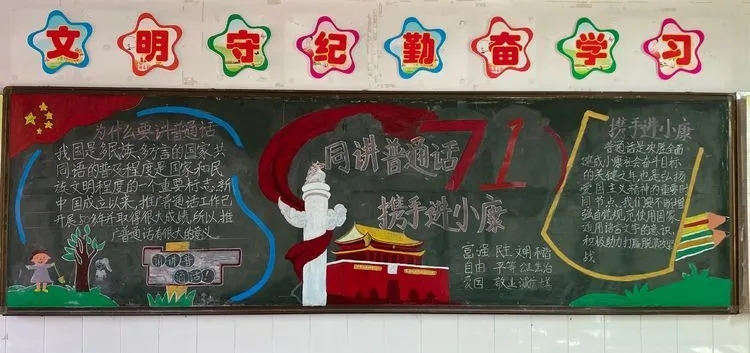 文明守纪勤奋学习
为什么要讲普通话
我国是多民族、多方言的国家,共
同语的普及程度是国家和民
族文明程度的一个重要标志,新
中国成立以来,推广普通话工作已
开展50多年并取得很大成绩,所以推
广普通话有很大的意义
同讲普通话
71
携手进小康
富强 民主 文明 和谐
自由 平等 公正 法治
爱国 敬业 诚信
携手进小康
建成小康社会奋斗目标
的关键之年,也是弘扬
爱国主义精神的重要时
间节点,我们要不断增
强自觉规范使用国家
通用语言文字的意识,
积极助力打赢脱贫攻坚
战